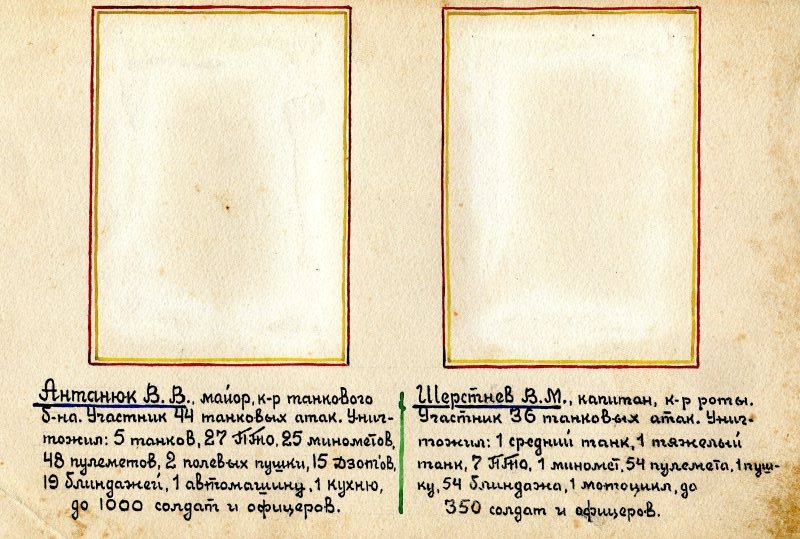 Антанюк В. В., майор, к-р танкового
б-на. Участник 44 танковых атак. Унич-
тожил: 5 танков, 27 ПТО, 25 минометов,
48 пулеметов, 2 полевых пушки, 15 дзот'ов,
19 блиндажей, 1 автомашину, 1 кухню,
до 1000 солдат и офицеров.
Шерстнев В.М., капитан, к-р роты.
Участник 36 танковых атак. Унич-
тожил: 1 средний танк, 1 тяжелый
танк, 7 ПТО, 1 миномет, 54 пулемета, 1 пуш-
ку, 54 блиндажа, 1 мотоцикл, до
350 солдат и офицеров.